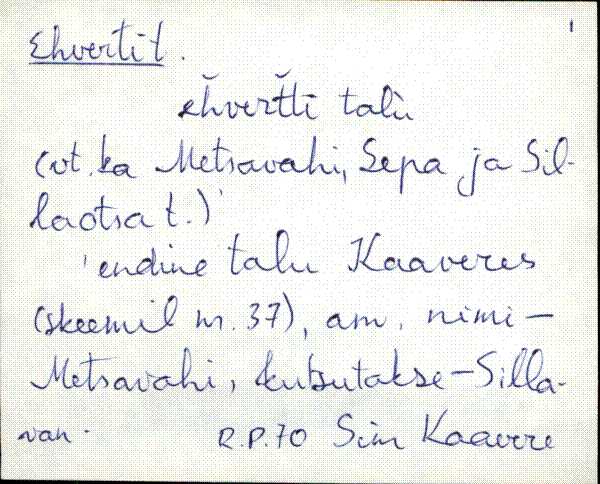 Ehverti t.
ĕhvertti talù
(vt. ka Metsavahi, Sepa ja Sil-
laotsa t.)
'endine talu Kaaveres
(skeemil nr. 37), am. nimi –
Metsavahi, kutsutakse – Silla-
van.
R.P.70 Sim Kaavere